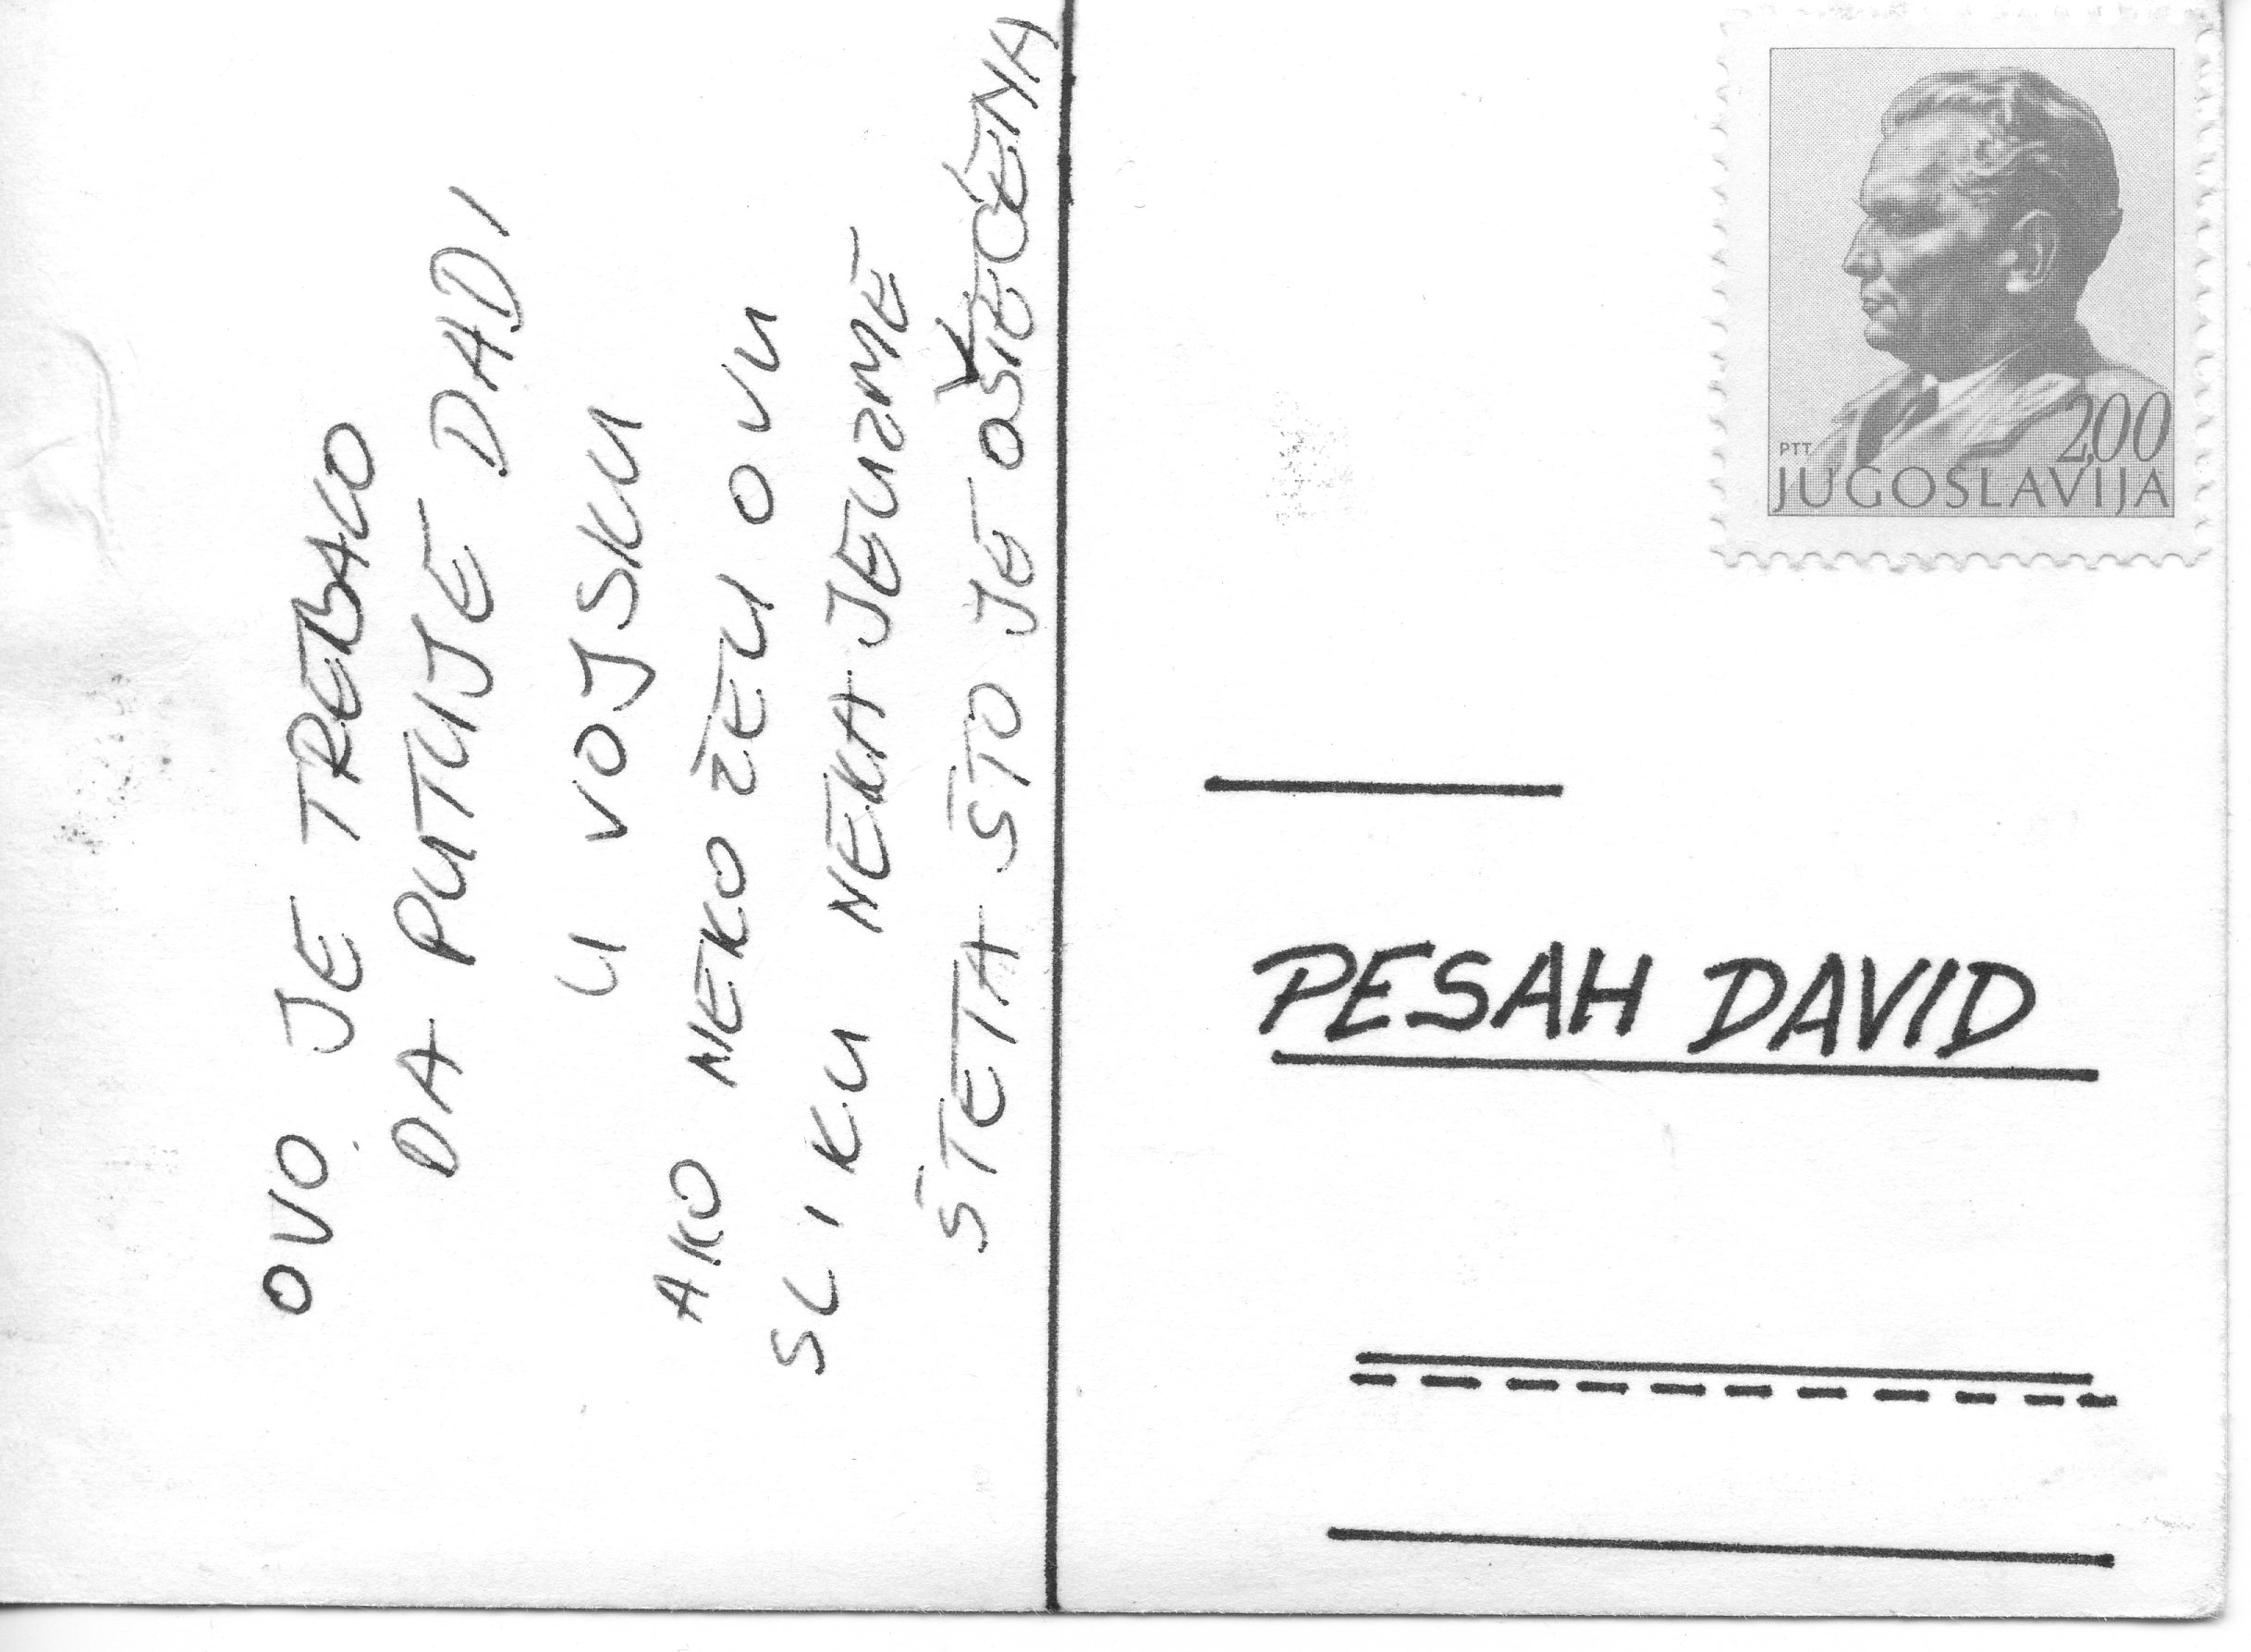 OVO JE TREBALO
DA PUTUJE DADI
U VOJSKU
AKO NEKO ŽELI OVU
SLIKU NEKA JE UZME
ŠTETA ŠTO JE OŠTEĆENA
200
PTT
JUGOSLAVIJA
PESAH DAVID